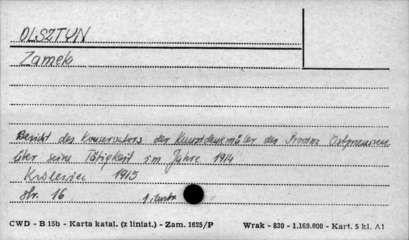 OLSZTYN
Zamek
Bericht des Konservators der Kunstdenkmäler der Provinz Ostpreussen
über seine Tätigkeit im Jahre 1914
Królewiec 1915
str. 16 1 ilustr.
CWD - B 15b - Karta katal. (z liniat.) - Zam. 1625/P Wrak - 830 - 1.169.000 - Kart. 5 kl. A1